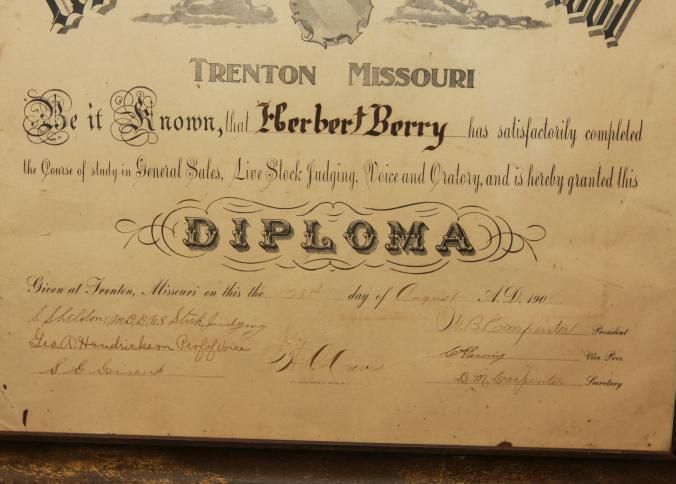 TRENTON MISSOURI
Be it Known, that Herbert Berry has satisfactorily completed
the Course of study in General Sales, Live Stock Judging, Voice and Oratory, and is hereby granted this
DIPLOMA
Given at Trenton, Missouri on this the 28th day of August A.D. 190
S Sheldon Stock Judging
W.B. Carpenter President
Geo. A. Handrickson Prof of Voice
Vice Pres.
D. M. Carpenter Secretary